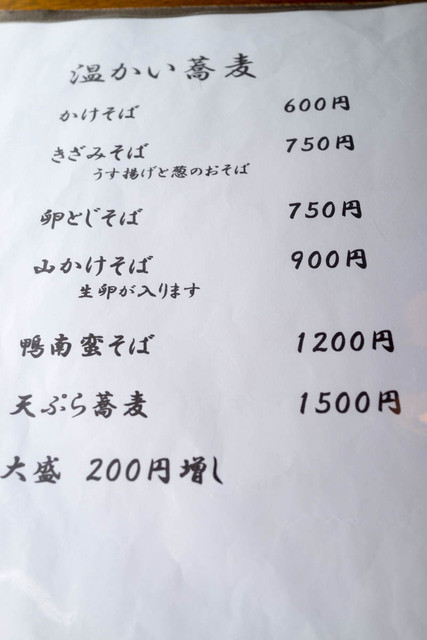 温かい蕎麦
かけそば 600円
きざみそば 750円
うす揚げと葱のおそば
卵とじそば 750円
山かけそば 900円
生卵が入ります
鴨南蛮そば 1200円
天ぷら蕎麦 1500円
大盛 200円増し